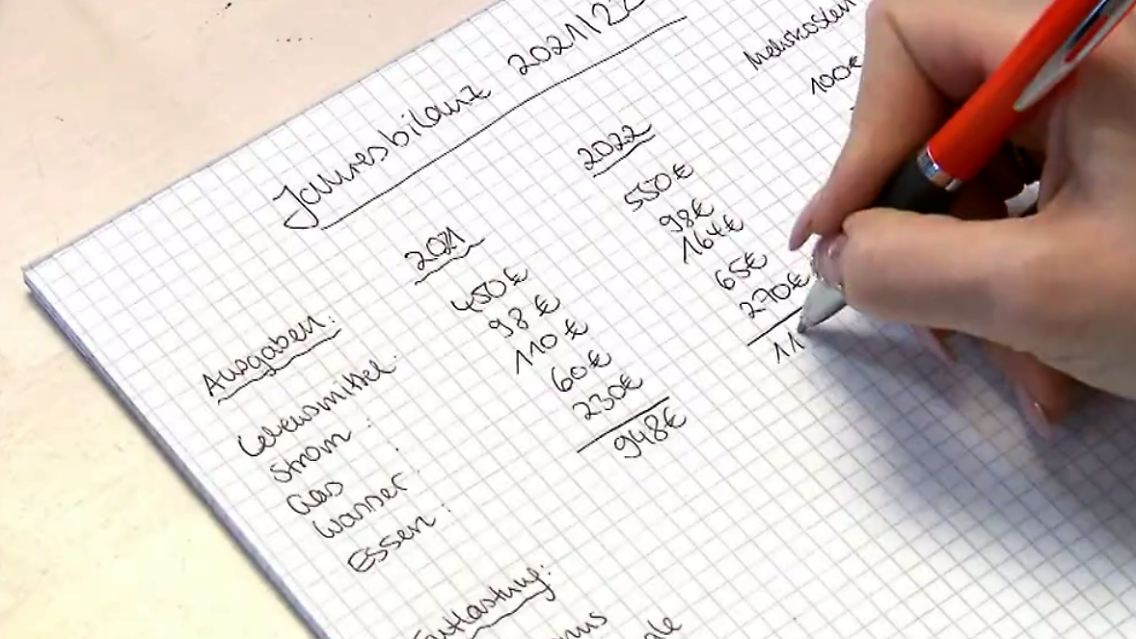 Jahresbilanz 2021/22
2021 2022 Mehrkosten
Ausgaben:
Lebensmittel: 450€ 550€ 100€
Strom: 98€ 98€
Gas 110€ 164€
Wasser 60€ 65€
Essen: 230€ 270€
948€ 11
Entlastung: